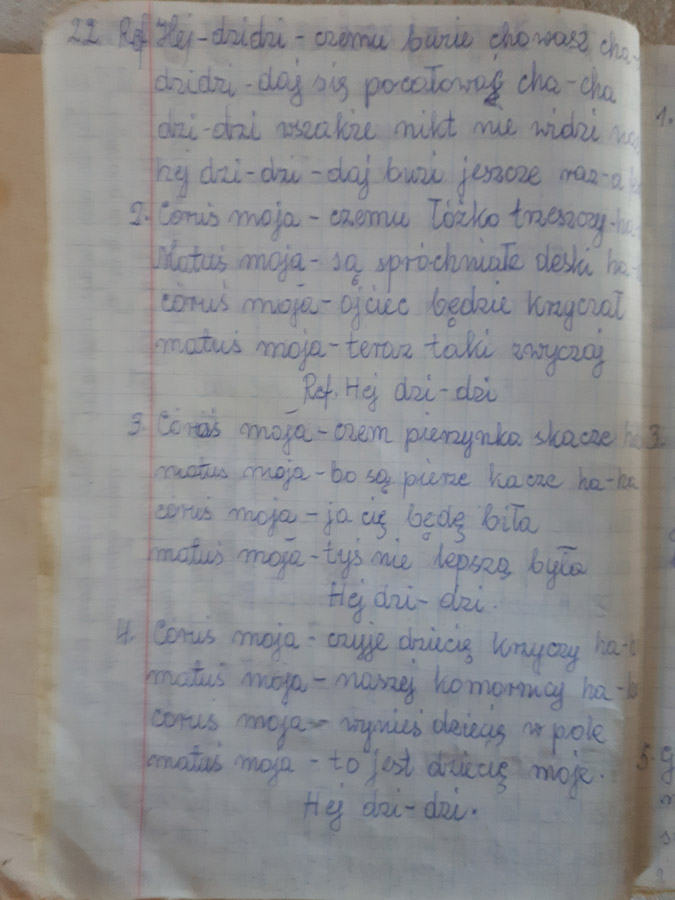 22. Ref. Hej-dzidzi-czemu buzie chowasz cha-
dzidzi-daj się pocałować cha-cha
dzi-dzi wszakże nikt nie widzi nas
hej dzi-dzi-daj buzi jeszcze raz-a
2. Córuś moja-czemu łóżko trzeszczy-ha-
Matuś moja-są spróchniałe deski ha-
córuś moja-ojciec będzie krzyczał
matuś moja-teraz taki zwyczaj
Ref. Hej dzi-dzi
3. Córuś moja-czem pierzynka skacze ha
matuś moja-bo są pierze kacze ha-ha
córuś moja-ja cię będę biła
matuś moja-tyś nie lepszą była
Hej dzi-dzi.
4. Córuś moja-czyje dziecię krzyczy ha-
matuś moja-naszej komornicy ha-
córuś moja-wynieś dziecię w pole
matuś moja-to jest dziecię moje.
Hej dzi-dzi.
1.
3.
5.